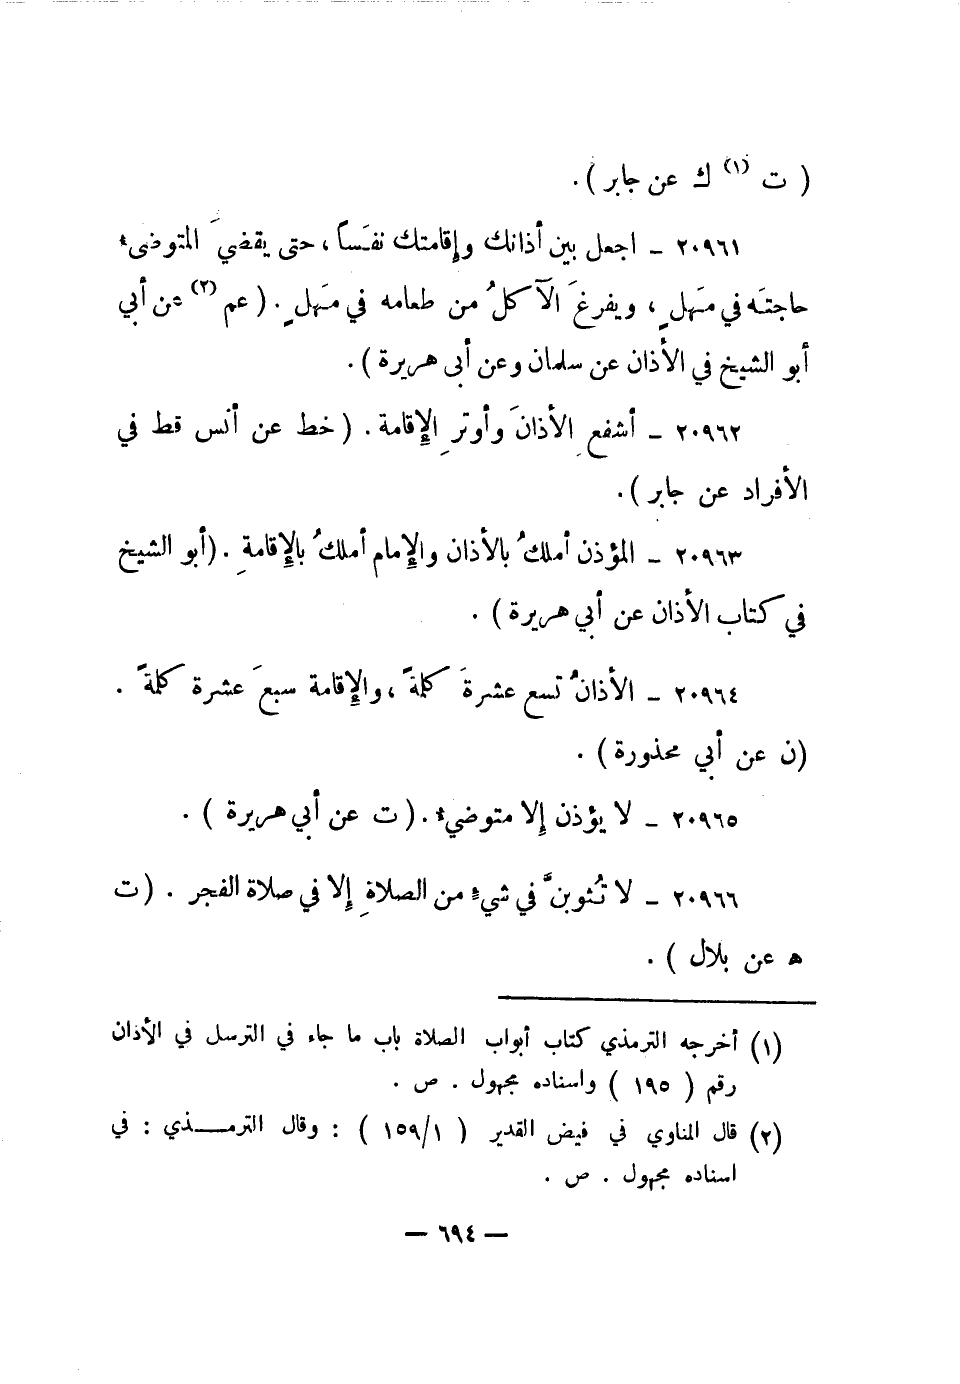 ( ت (١) ك عن جابر ) .
٢٠٩٦١ ـ اجعل بين أذانك وإقامتك نفَساً ، حتى يقضيَ المتوضىء
حاجتَه في مَهلٍ ، ويفرغَ الآكلُ من طعامه في مَهلٍ . ( عم (٢) عن أبي
أبو الشيخ في الأذان عن سلمان وعن أبى هريرة ) .
٢٠٩٦٢ ـ أشفعِ الأذانَ وأوترِ الإقامة . ( خط عن أنس قط في
الأفراد عن جابر ) .
٢٠٩٦٣ ـ المؤذن أملكُ بالأذان والإمام أملكُ بالإقامةِ . (أبو الشيخ
في كتاب الأذان عن أبي هريرة ) .
٢٠٩٦٤ ـ الأذانُ تسع عشرةَ كلمةً ، والإقامة سبعَ عشرة كلمةً .
(ن عن أبي محذورة ) .
٢٠٩٦٥ ـ لا يؤذن إلا متوضيء . ( ت عن أبي هريرة ) .
٢٠٩٦٦ ـ لا تُثوبنَّ في شيءٍ من الصلاةِ إلا في صلاة الفجر . ( ت
ه عن بلال ) .
(١) أخرجه الترمذي كتاب أبواب الصلاة باب ما جاء في الترسل في الأذان
رقم ( ١٩٥ ) واسناده مجهول . ص .
(٢) قال المناوي في فيض القدير ( ١٥٩/١ ) : وقال الترمـــذي : في
اسناده مجهول . ص .
— ٦٩٤ —